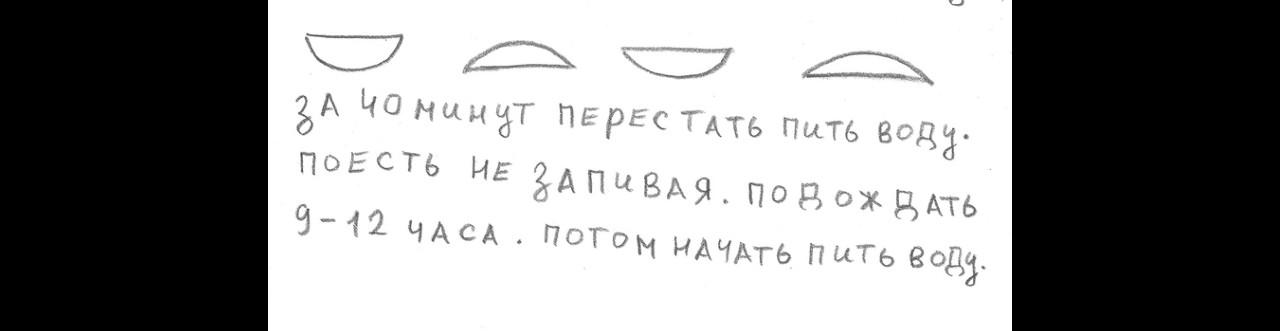 ЗА 40 МИНУТ ПЕРЕСТАТЬ ПИТЬ ВОДУ.
ПОЕСТЬ НЕ ЗАПИВАЯ. ПОДОЖДАТЬ
9-12 ЧАСА. ПОТОМ НАЧАТЬ ПИТЬ ВОДУ.